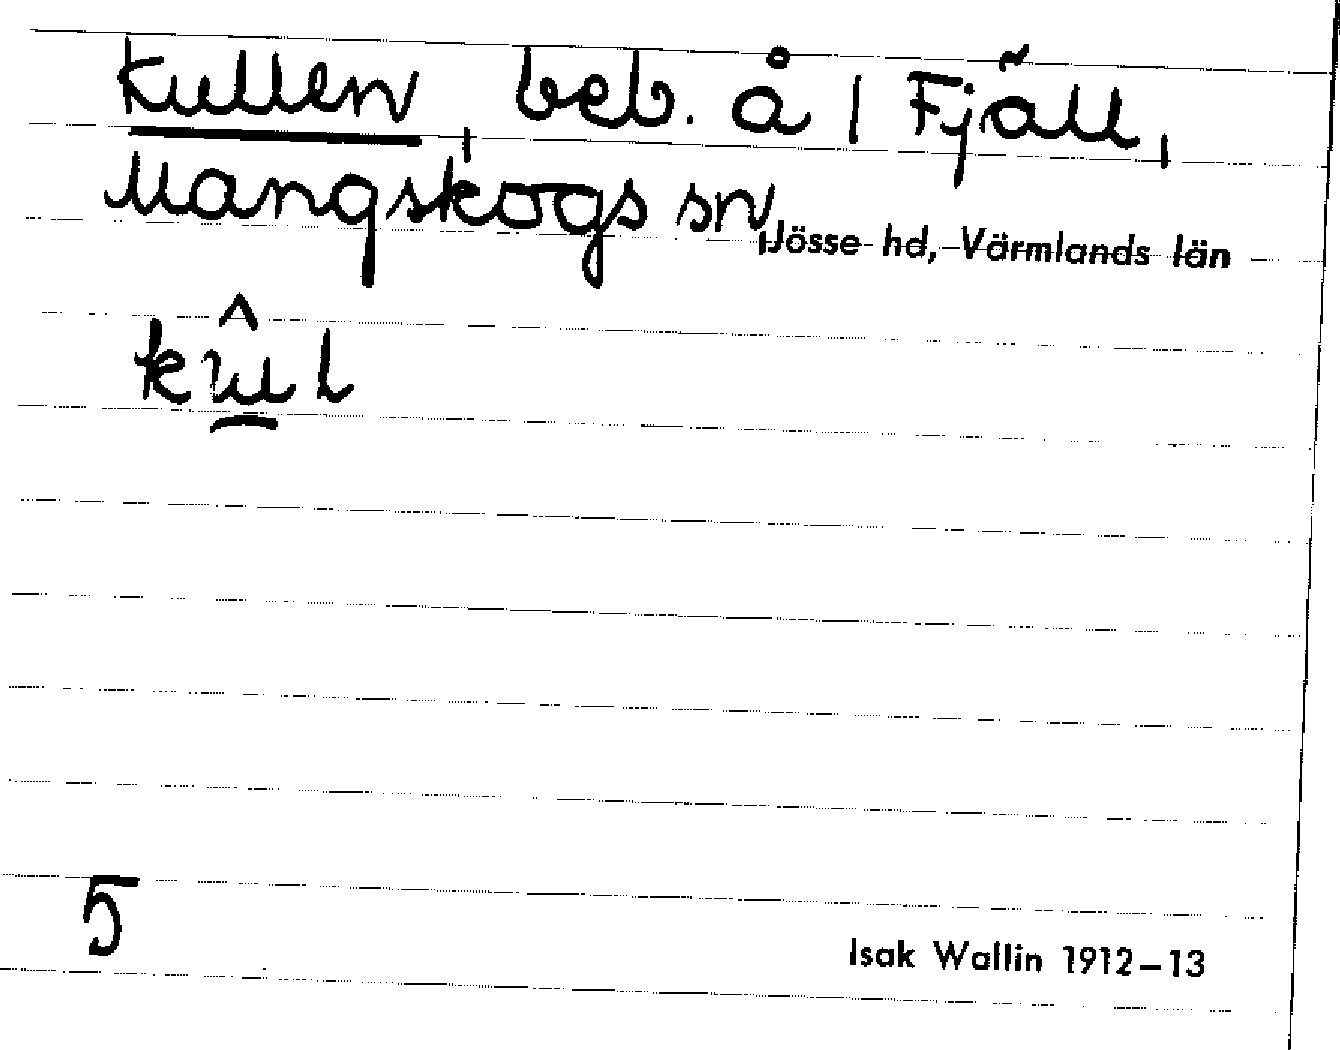 Kullen, beb. å 1 Fjäll,
Mangskogs sn, Jösse hd, Värmlands län
kûl
5
Isak Wallin 1912–13